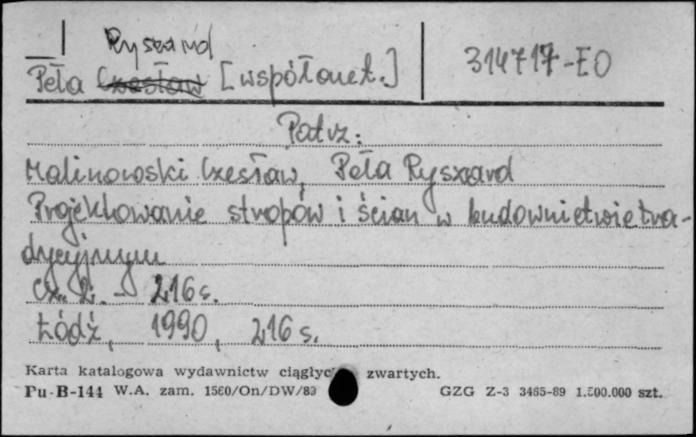 Ryszard
Peła Czesław [współaut.] 314717-EO
Patrz:
Malinowski Czesław, Peła Ryszard
Projektowanie stropów i ścian w budownictwie tra-
dycyjnym
Cz. 2. - 216 s.
Łódź, 1990, 216 s.
Karta katalogowa wydawnictw ciągłyc zwartych.
Pu-B-144 W.A. zam. 1560/On/DW/89 GZG Z-3 3465-89 1.500.000 szt.